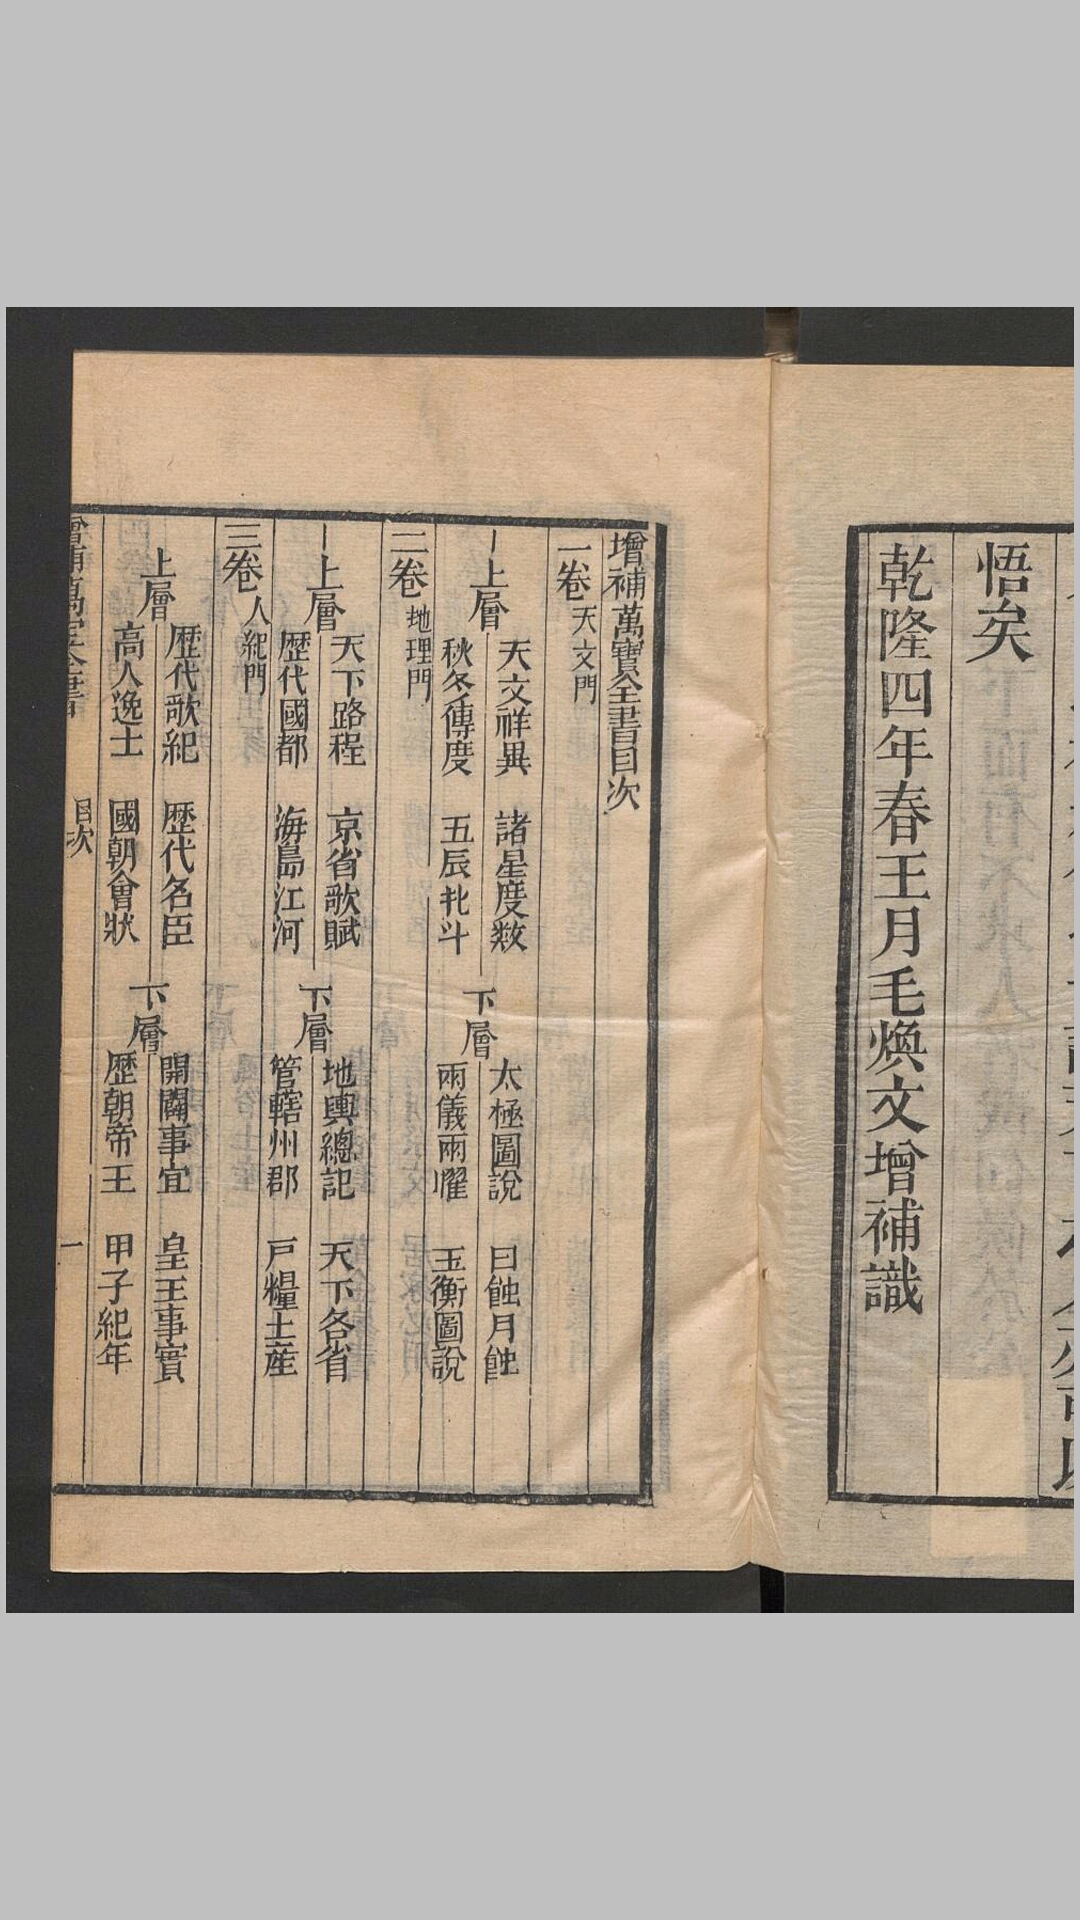 悟矣
乾隆四年春王月毛煥文增補識
增補萬寶全書目次
一卷 天文門
上層 天文祥異 諸星度数 下層 太極圖說 日蝕月蝕
秋冬傳度 五辰北斗 兩儀兩曜 玉衡圖說
二卷 地理門
上層 天下路程 京省歌賦 下層 地輿總記 天下各省
歷代國都 海島江河 管轄州郡 戸糧土産
三卷 人紀門
上層 歷代歌紀 歷代名臣 下層 開闢事宜 皇王事實
高人逸士 國朝會狀 歷朝帝王 甲子紀年
增補萬寶全書 目次 一